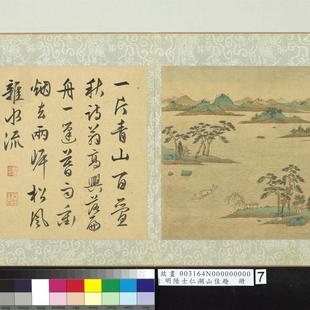 一片青山百疊
秋詩翁高興落扁
舟一蓬暮雨
烟去兩岸松風
雜水流
故畫 003164N000000000
明陸士仁湖山佳趣 冊
7